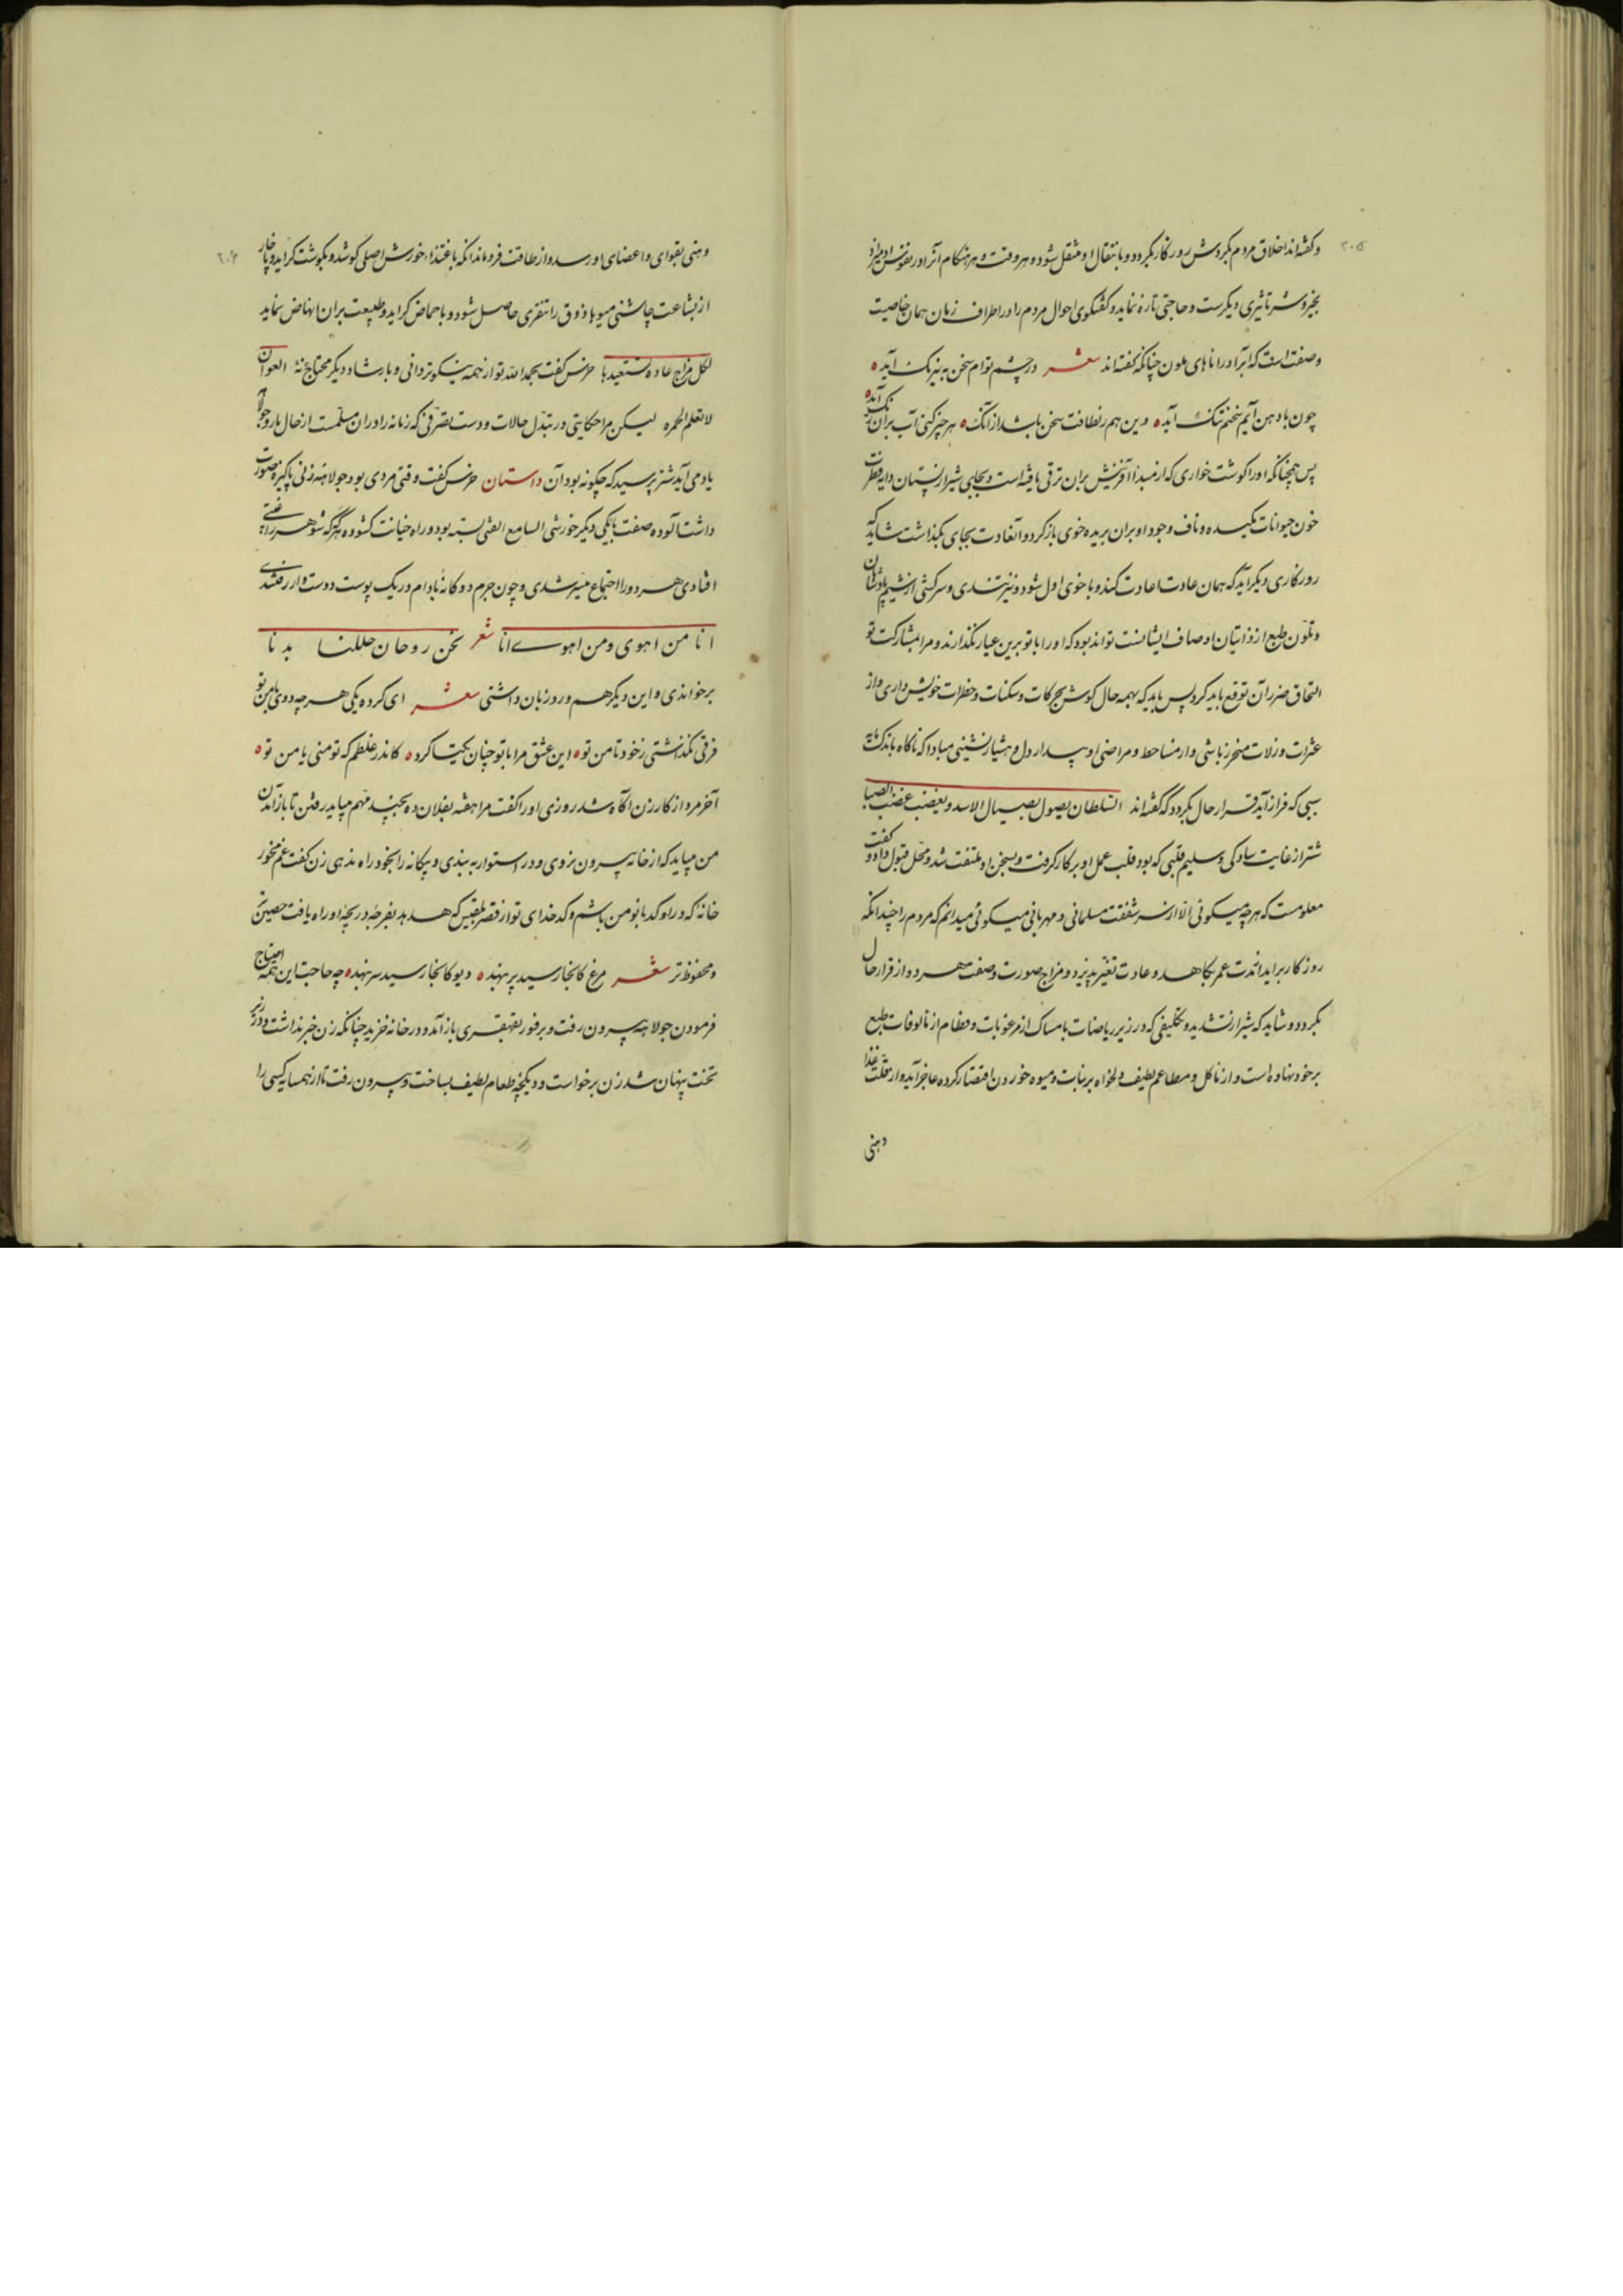 ۲۰۵
وگفته‌اند اخلاق مردم بگردش روزگار بگردد و بانتقال او منتقل شود و هر وقت و هر هنگام اثر او در نفوس
بخیر و شر تاثیری دیگرست و حاجتی تازه نماید و گفتگوی احوال مردم را در اطراف زمان همان خاصیت
وصفت است که آبرا در اناهای ملون چنانکه گفته‌اند شعر در چشم توام سخن به نیرنگ آید
چون با دهن آیم سخنم تنگ آید دین هم ز لطافت سخن باشد از آنک هر چیز کنی آب بران رنگ آید
پس همچنانکه او را گوشت خواری که از مبداأ آفرینش بران ترقی یافته است و بجای شیر از پستان دایه فطرت
خون حیوانات مکیده و ناف وجود او بران بریده خوی باز کرد و آنعادت بجای بگذاشت شاید که
روزگاری دیگر آید که همان عادت اعادت کند و با خوی اول شود و نیز تندی و سرکشی از شیم پادشاهان
و تلون طبع از ذاتیات اوصاف ایشانست تواند بود که او را با تو برین عیار نگذارند و مرا بمشارکت تو
التحاق ضرر آن توقع باید کرد پس باید که بهمه حال گوش بحرکات و سکنات و خطرات خویش داری و از
عثرات و زلات متحرز باشی و از مساخط و مراضی او بیدار دل و هشیار نشینی مبادا که ناگاه باندک مایه
سببی که فراز آید قرار حال بگردد که گفته‌اند السلطان یصول بصیال الاسد و یغضب غضب الصبا
شتر از غایت ساده‌گی و سلیم قلبی که بود قلب عمل او بر کار گرفت و بسخن او ملتفت شد و محل قبول داد و گفت
معلومست که هر چه میگوئی الا از سر شفقت مسلمانی و مهربانی میگوئی میدانم که مردم را چندانکه
روزگار برآید مدت عمر بکاهد و عادت تغیر پذیرد و مزاج صورت و صفت هر دو از قرار حال
بگردد و شاید که شیر از تشدید و تکلیفی که در زیر ریاضات با مساک از مرغوبات و فطام از مالوفات طبع
برخود نهاده است و از ماکل و مطاعم لطیف دلخواه بر نبات و میوه خوردن اقتصار کرده عاجز آید و از قلت غذا
وهنی
۲۰۶
وهنی بقوای و اعضای او رسد و از طاقت فرو ماند آنکه باغتذاء خورش اصلی کوشد و بگوشت گراید و یا چنان
از بشاعت چاشنی میوها ذوق را تنفری حاصل شود و با حماض گراید و طبیعت بران انهاض نماید
لکل مزاج عادة تستعیدها خرس گفت بحمد الله تو از همه نیکوتر دانی و بارشاد دیگر محتاج نه العوان
لا تعلم الخمره لیکن مرا حکایتی در تبدل حالات و دست تصرفی که زمانه را در ان مسلمست از حال مار و جولاه
یاد می‌آید شتر پرسید که چگونه بود آن داستان خرس گفت وقتی مردی بود جولاهه زنی پاکیزه صورت
داشت آلوده صفت با یکی دیگر خورشی السامع الفتی بسته بود و راه خیانت گشوده هرگه که شوهر را غیبتی
افتادی هر دو را اجتماع میسر شدی و چون جرم دوگانه بادام در یک پوست دوست وار رفتندی
انا من اهوی ومن اهوے انا شعر نحن روحان حللنا بدنا
برخواندی و این دیگر هم ورد زبان داشتی شعر ای کرده یکی هر چه دوی با من تو
فرقی نگذاشتی ز خود تا من تو این عشق مرا با تو چنان یکتا کرد کاندر غلطم که تو منی یا من تو
آخر مرد از کار زن آگاه شد روزی او را گفت مرا هفته بفلان ده بچند مهم میباید رفتن تا باز آمدن
من میباید که از خانه بیرون نروی و در استوار به بندی و بیگانه را بخود راه ندهی زن گفت غم مخور
خانه که در او کدبانو من باشم و کدخدای تو از قصر بلقیس که هدهد بفرجه دریچه او راه یافت حصین تر
و محفوظ تر شعر مرغ کانجا رسید پر بنهد دیو کانجا رسید سر بنهد چه حاجت این همه احتیاج
فرمودن جولاهه بیرون رفت و بر فور بقهقری باز آمد و در خانه خزید چنانکه زن خبر نداشت و در زیر
تخت پنهان شد زن برخواست و دیگچه طعام لطیف بساخت و بیرون رفت تا از همسایه کسی را